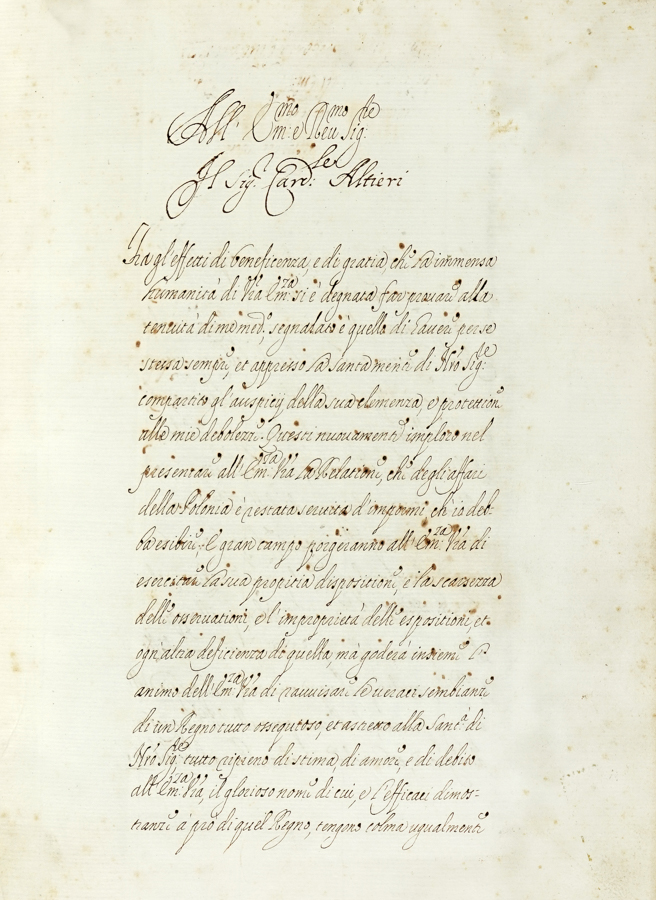 All' Em:mo e Reu:mo Sig:re
Il Sig:r Card:le Altieri
Tra gl'effetti di beneficenza, e di gratia, che la immensa
humanità di Vra Em:za si è degnata far prouare alla
tenuità di me med:o, segnalato è quello di hauere per se
stessa sempre, et appresso la santa mente di Nro Sig:re
compartito gl'auspicij della sua clemenza, e protettione
alle mie debolezze. Questi nuouamente imploro nel
presentare all'Em:za Vra la Relatione, che degli affari
della Polonia è restata seruita d'impormi, ch'io deb-
ba esibire, e gran campo porgeranno all'Em:za Vra di
esercitare la sua propitia dispositione, e la scarsezza
delle osseruationi, e l'improprietà delle espositioni, et
ogn'altra deficienza di quella, mà goderà insieme l'
animo dell'Em:za Vra di rauuisare le ueraci sembianze
di un Regno tutto ossequioso, et astretto alla Sant:à di
Nro Sig:re tutto ripieno di stima di amore, e di debito
all'Em:za Vra, il glorioso nome di cui, e l'efficaci dimos-
tranze à prò di quel Regno, tengono colma ugualmente